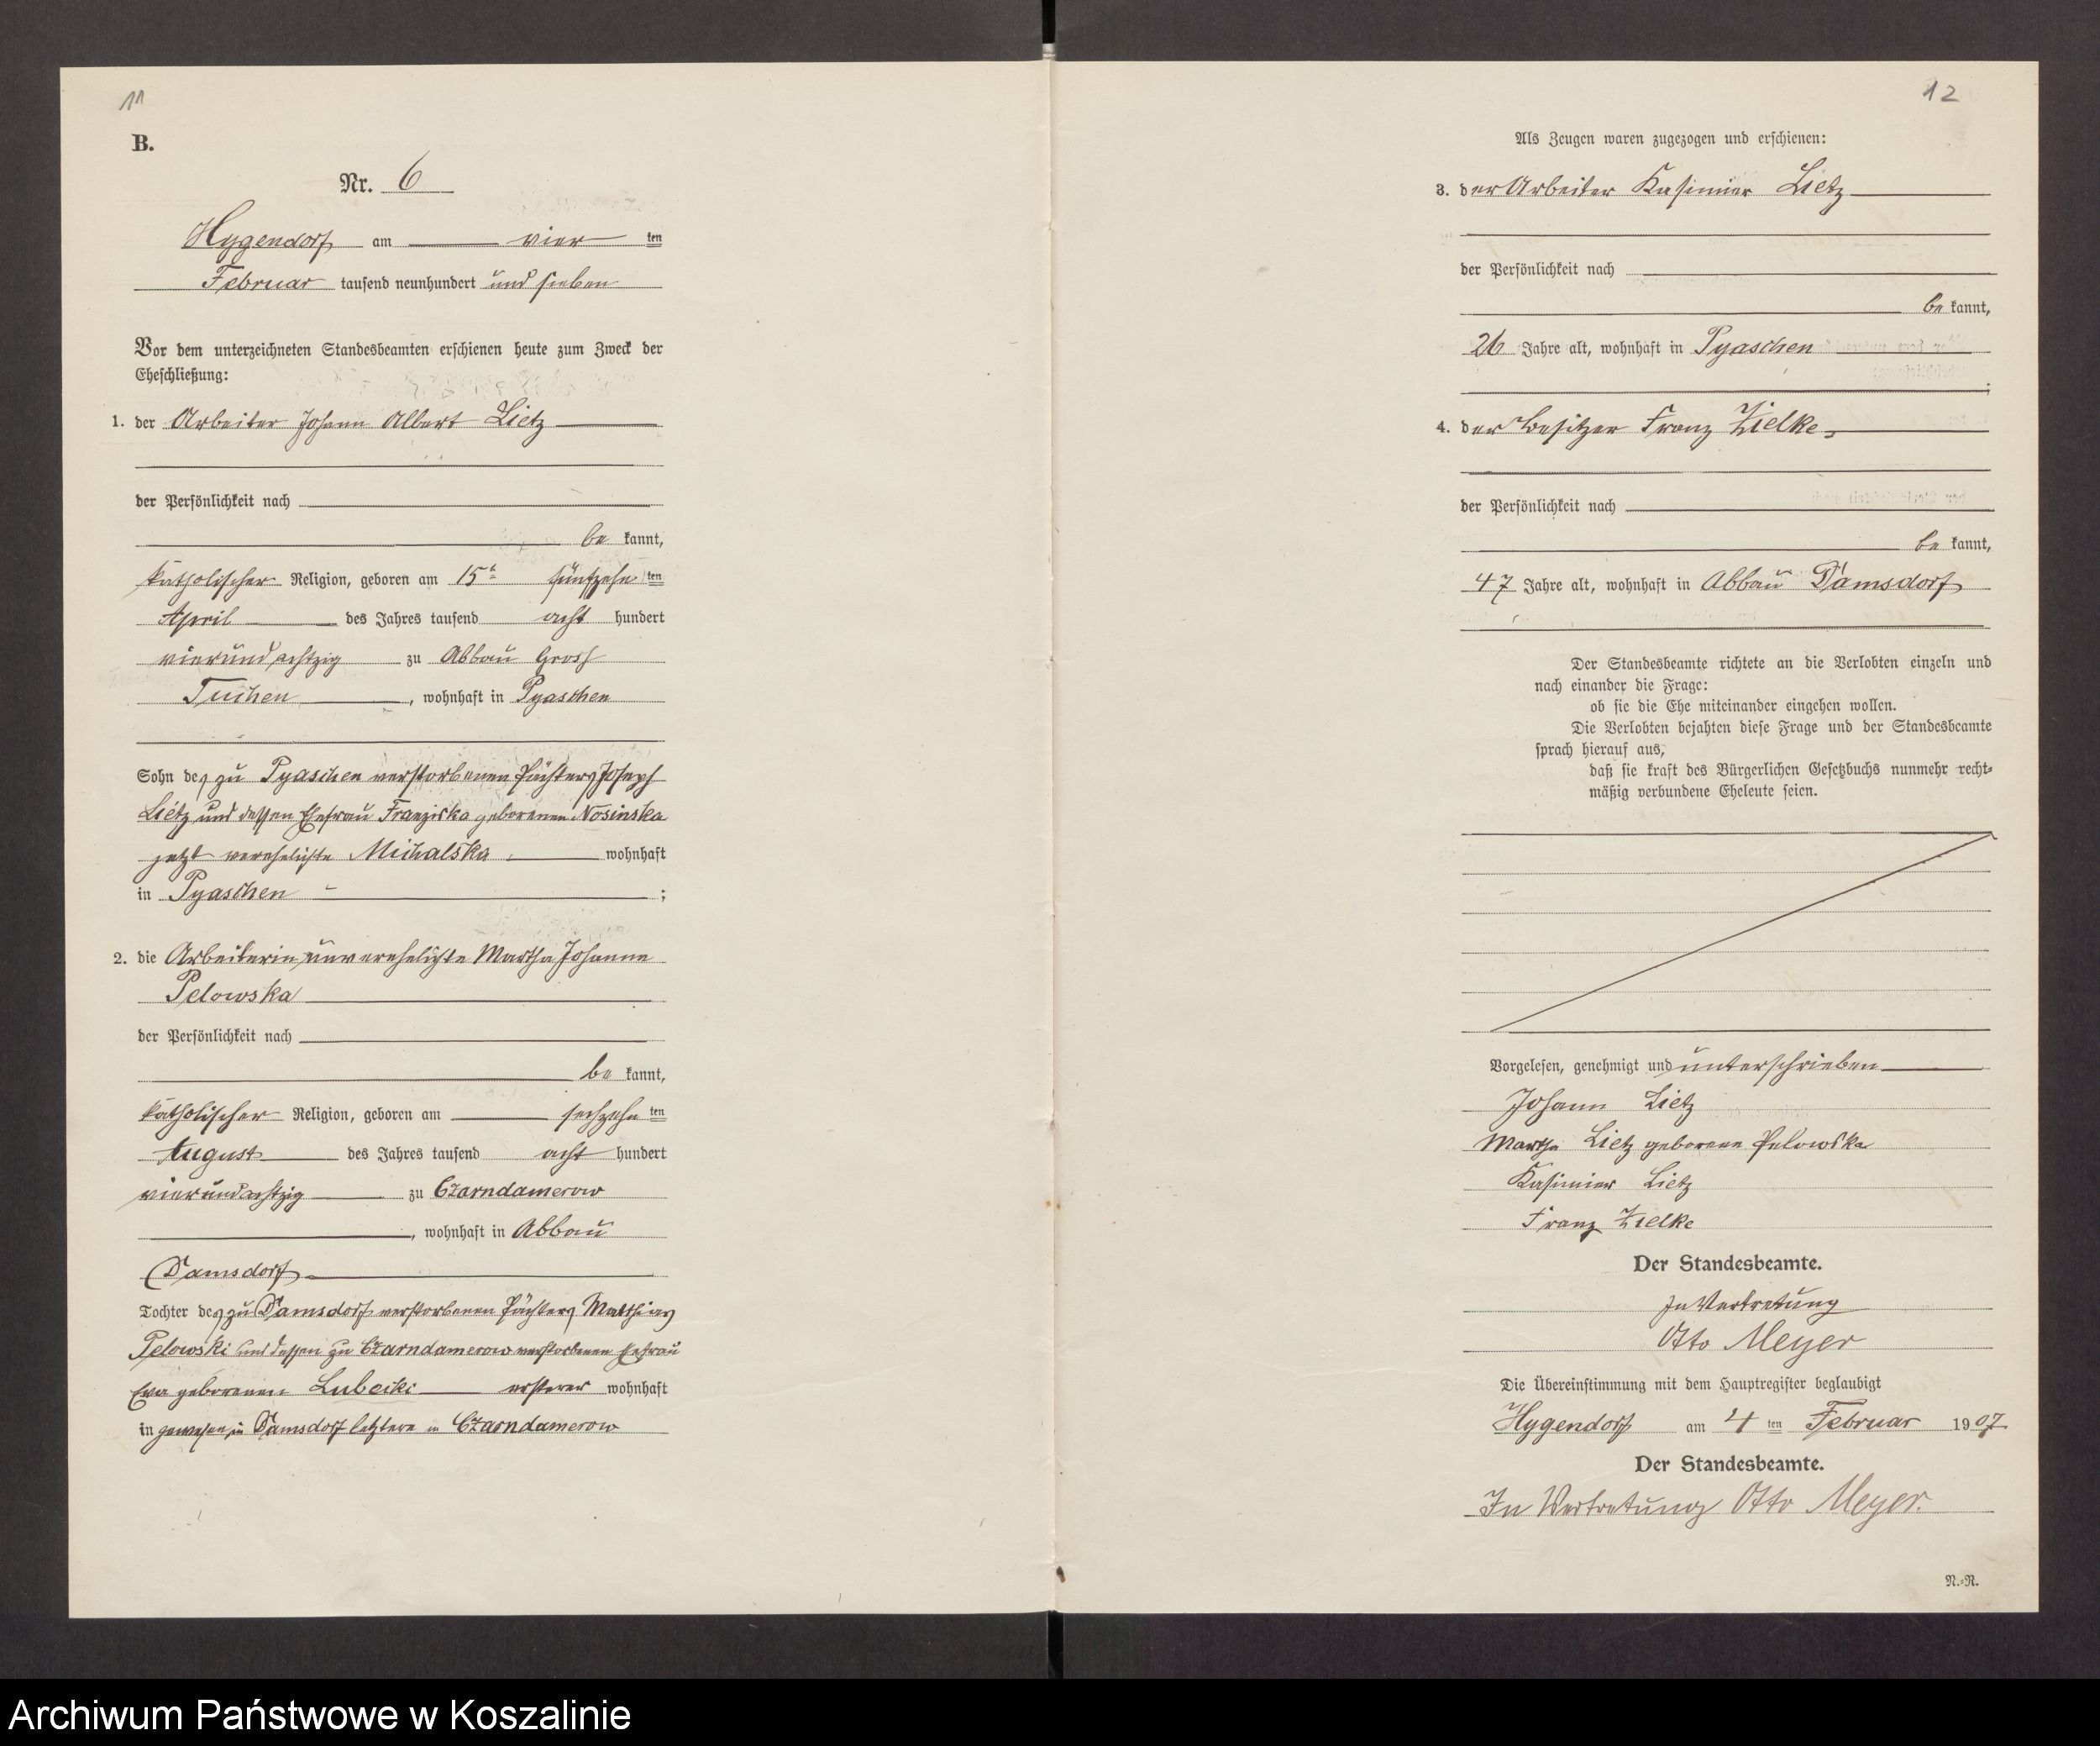 11
B.
Nr. 6
Hygendorf am vier ten
Februar tausend neunhundert und sieben
Vor dem unterzeichneten Standesbeamten erschienen heute zum Zweck der
Eheschließung:
1. der Arbeiter Johann Albert Lietz
der Persönlichkeit nach
be kannt,
katholischer Religion, geboren am 15t fünfzehn ten
April des Jahres tausend acht hundert
vierundachtzig zu Abbau Gross
Tuchen, wohnhaft in Pyaschen
Sohn des zu Pyaschen verstorbenen Pächters Joseph
Lietz und dessen Ehefrau Franziska geborenen Nosinska
jetzt verehelichte Michalska wohnhaft
in Pyaschen ;
2. die Arbeiterin unverehelichte Martha Johanna
Pelowska
der Persönlichkeit nach
be kannt,
katholischer Religion, geboren am sechzehn ten
August des Jahres tausend acht hundert
vierundachtzig zu Czarndamerow
, wohnhaft in Abbau
Damsdorf
Tochter des zu Damsdorf verstorbenen Pächters Matthias
Pelowski und dessen zu Czarndamerow verstorbenen Ehefrau
Eva geborenen Lubecki ersterer wohnhaft
in gewesen in Damsdorf letztere in Czarndamerow
12
Als Zeugen waren zugezogen und erschienen:
3. der Arbeiter Kasimier Lietz
der Persönlichkeit nach
be kannt,
26 Jahre alt, wohnhaft in Pyaschen
;
4. der Besitzer Franz Zielke
der Persönlichkeit nach
be kannt,
47 Jahre alt, wohnhaft in Abbau Damsdorf
Der Standesbeamte richtete an die Verlobten einzeln und
nach einander die Frage:
ob sie die Ehe miteinander eingehen wollen.
Die Verlobten bejahten diese Frage und der Standesbeamte
sprach hierauf aus,
daß sie kraft des Bürgerlichen Gesetzbuchs nunmehr recht-
mäßig verbundene Eheleute seien.
Vorgelesen, genehmigt und unterschrieben
Johann Lietz
Martha Lietz geborene Pelowska
Kasimier Lietz
Franz Zielke
Der Standesbeamte.
In Vertretung
Otto Meyer
Die Übereinstimmung mit dem Hauptregister beglaubigt
Hygendorf am 4 ten Februar 1907
Der Standesbeamte.
In Vertretung Otto Meyer.
N.-R.
Archiwum Państwowe w Koszalinie